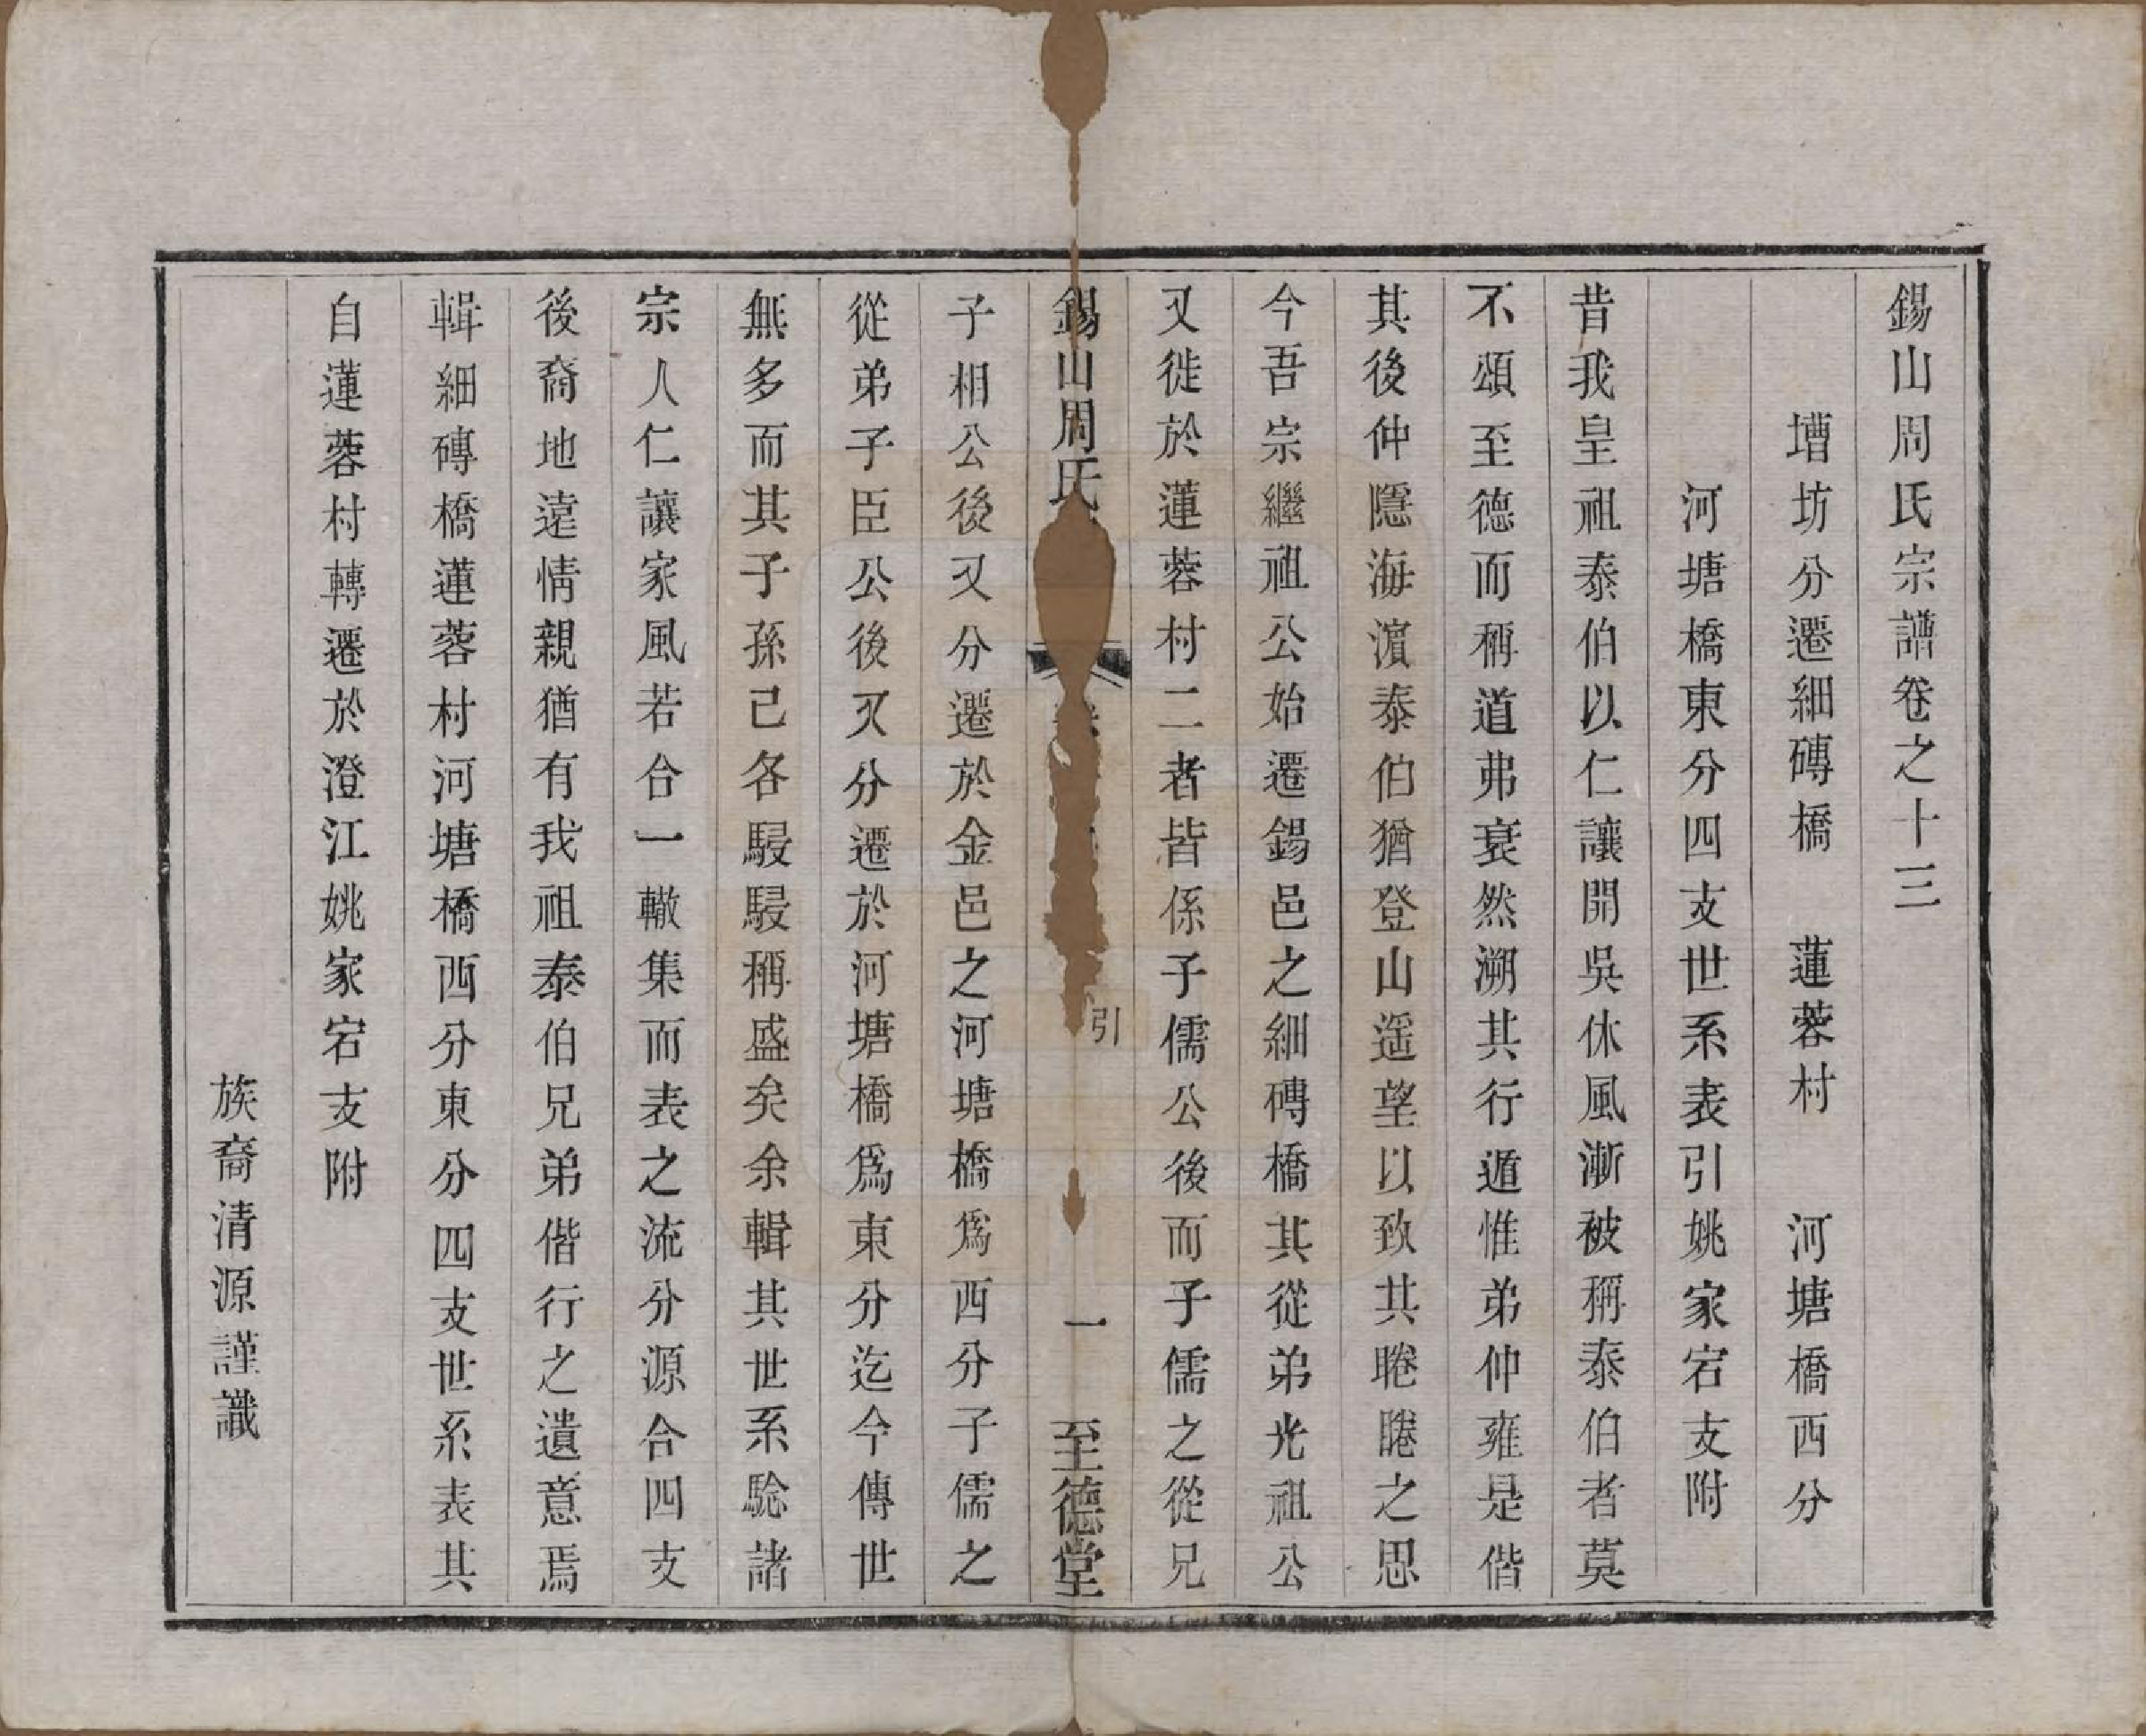 錫山周氏宗譜卷之十三
壋坊分遷細磚橋　蓮蓉村　河塘橋西分
河塘橋東分四支世系表引姚家宕支附
昔我皇祖泰伯以仁讓開吳休風漸被稱泰伯者莫
不頌至德而稱道弗衰然溯其行遁惟弟仲雍是偕
其後仲隱海濵泰伯猶登山遥望以致其睠睠之思
今吾宗繼祖公始遷錫邑之細磚橋其從弟光祖公
又徙於蓮蓉村二者皆係子儒公後而子儒之從兄
錫山周氏
引
一
至德堂
子相公後又分遷於金邑之河塘橋爲西分子儒之
從弟子臣公後又分遷於河塘橋爲東分迄今傳世
無多而其子孫己各駸駸稱盛矣余輯其世系騐諸
宗人仁讓家風若合一轍集而表之流分源合四支
後裔地遠情親猶有我祖泰伯兄弟偕行之遺意焉
輯細磚橋蓮蓉村河塘橋西分東分四支世系表其
自蓮蓉村轉遷於澄江姚家宕支附
族裔清源謹識